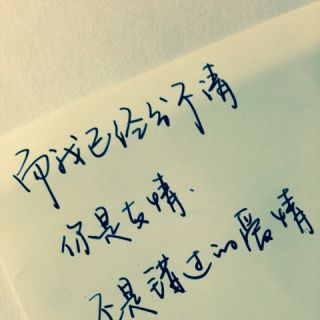 而我已经分不清
你是友情、
还是错过的爱情